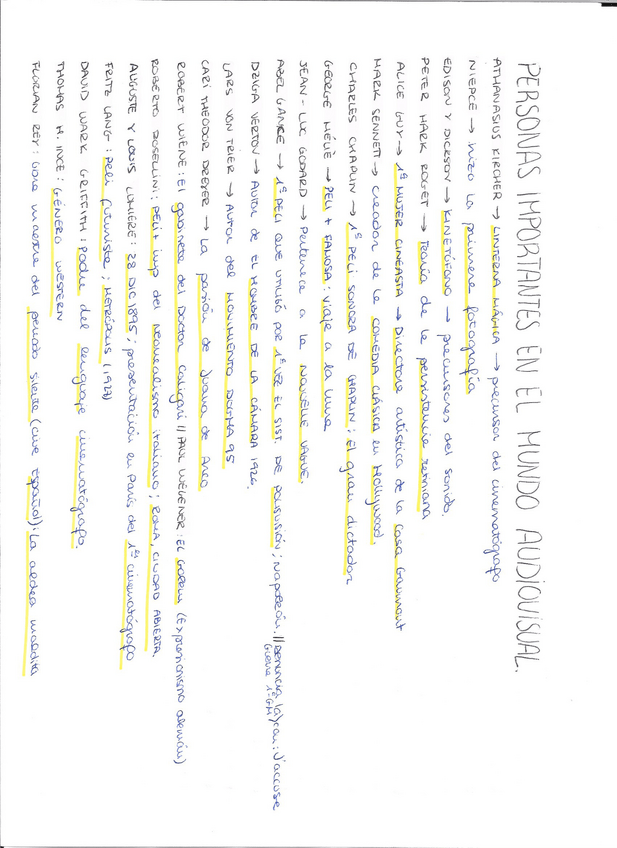 PERSONAS IMPORTANTES EN EL MUNDO AUDIOVISUAL.
ATHANASIUS KIRCHER → LINTERNA MÁGICA → precursor del cinematógrafo
NIEPCE → hizo la primera fotografía
EDISON Y DICKSON → KINETÓFONO → precursores del sonido.
PETER MARK ROGET → Teoría de la persistencia retiniana
ALICE GUY → 1ª MUJER CINEASTA → Directora artística de la Casa Gaumont
MARK SENNETT → creador de la COMEDIA CLÁSICA en Hollywood.
CHARLES CHAPLIN → 1ª PELI SONORA DE CHAPLIN: El gran dictador
GEORGE MÉLIÈ → PELI + FAMOSA: Viaje a la luna
JEAN-LUC GODARD → Pertenece a la NOUVELLE VAGUE.
ABEL GANCE → 1ª PELI QUE UTILIZÓ POR 1ª VEZ EL SIST. DE POLIVISIÓN; Napoleón. // Denuncia la) con: J'accuse
Guerra 1ª GM
DZIGA VERTOV → Autor de EL HOMBRE DE LA CÁMARA 1926.
LARS VON TRIER → Autor del MOVIMIENTO DOGMA 95
CARL THEODOR DREYER → La pasión de Juana de Arco
ROBERT WIENE: El gabinete del Doctor Caligari // PAUL WEGENER: EL GOLEM (Expresionismo alemán)
ROBERTO ROSELLINI: PELI + imp del Neorrealismo italiano; ROMA, CIUDAD ABIERTA.
AUGUSTE Y LOUIS LUMIERE: 28 DIC 1895; presentación en París del 1er cinematógrafo
FRITZ LANG: Peli futurista; METRÓPOLIS (1927)
DAVID WARK GRIFFITH: padre del lenguaje cinematógrafo.
THOMAS H. INCE: GÉNERO WESTERN
FLORIAN REY: Obra maestra del periodo silente (cine español): La aldea maldita